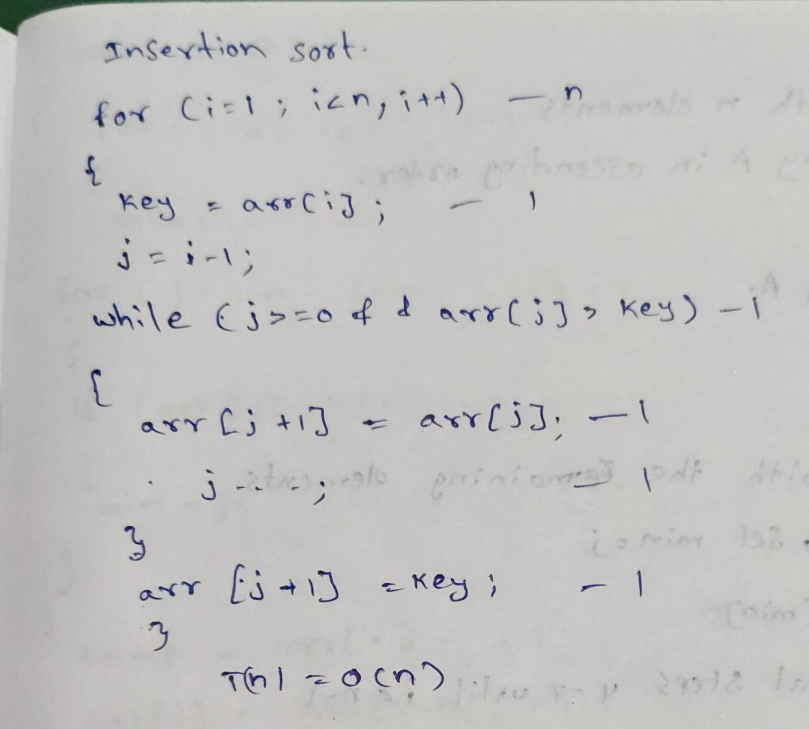 Insertion sort.
for (i=1; i<n, i++) — n
{
key = arr[i]; — 1
j = i-1;
while (j>=0 && arr[j] > key) — i
{
arr[j+1] = arr[j]; — 1
j--; — 1
}
arr [j+1] = key; — 1
}
T(n) = O(n)